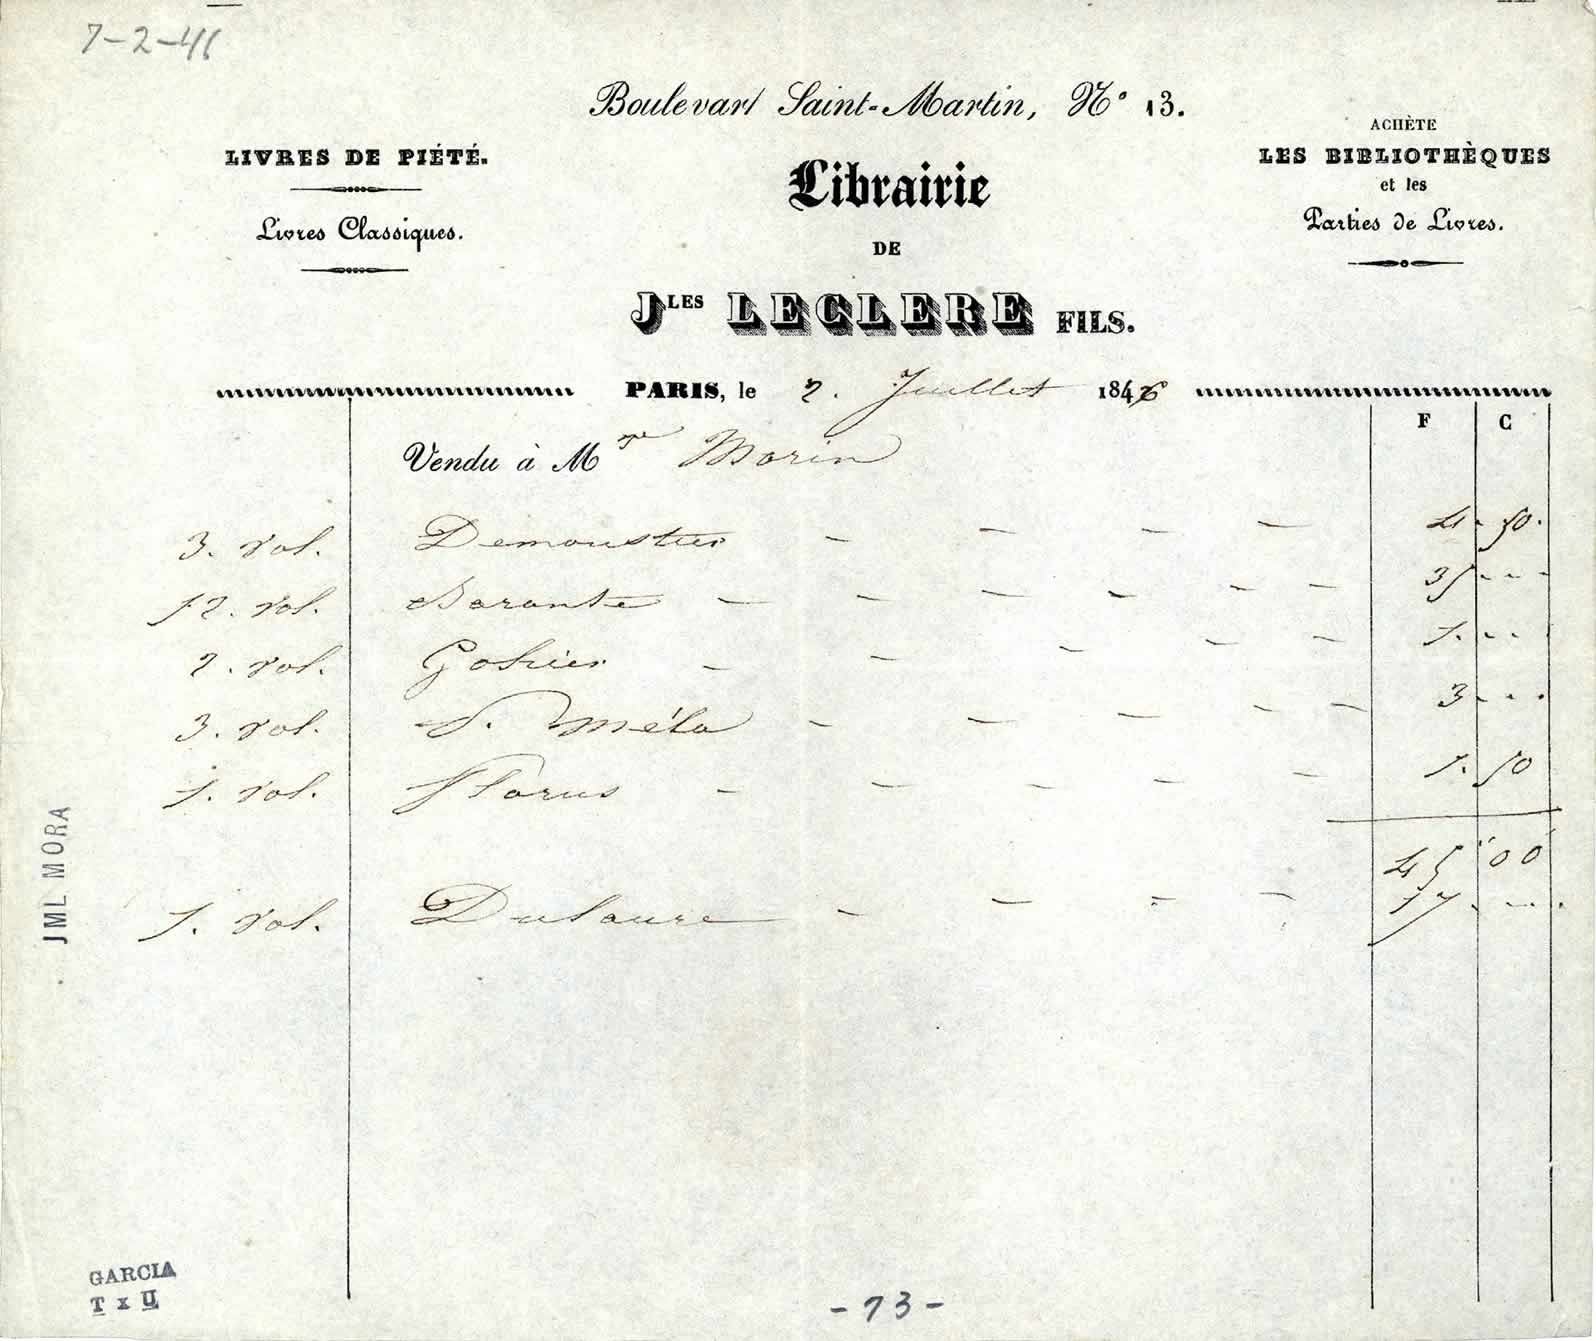 7-2-46
Boulevart Saint-Martin, N° 13.
LIVRES DE PIÉTÉ.
Livres Classiques.
ACHÈTE
LES BIBLIOTHÈQUES
et les
Parties de Livres.
Librairie
DE
JLES LECLERE FILS.
PARIS, le 2. Juillet 1846
F C
Vendu à M Morin
3. vol. Demoustier 4. 50.
12. vol. Barante 35
2. vol. Gohier 1.
3. vol. P. Méla 3
1. vol. Florus 1. 50
45 00
1. vol. Dulaure 17.
JML MORA
GARCIA
T x U
-73-